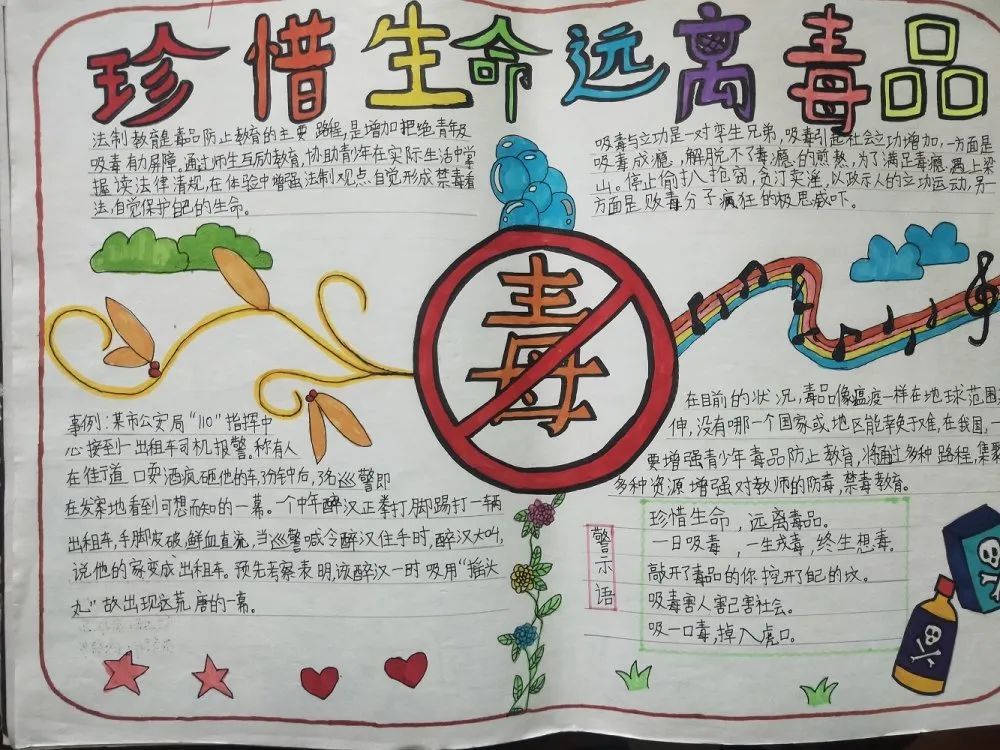 珍惜生命远离毒品
法制教育是毒品防止教育的主要路程,是增加拒绝青年及
吸毒有力屏障。通过师生与励教育,协助青少年在实际生活中掌
握读法律清规,在体验中增强法制观点自觉形成禁毒看
法,自觉保护自己的生命。
吸毒与立功是一对孪生兄弟,吸毒引起社会立功增加,一方面是
吸毒成瘾,解脱不了毒瘾的煎熬,为了满足毒瘾遇上梁
山。停止偷扒抢窃,贪污卖淫,以政示人的立功运动,另一
方面是败毒分子疯狂的极思威吓。
毒
事例:某市公安局“110”指挥中
心接到一出租车司机报警。称有人
在街道口耍酒疯砸他的车,3分钟后,3名巡警即
在发案地看到可想而知的一幕。一个中年醉汉正拳打脚踢打一辆
出租车,手脚皮破,鲜血直流,当巡警喊令醉汉住手时,醉汉大叫,
说他的家变成出租车。预先考察表明,该醉汉一时吸用“摇头
丸”故出现这荒唐的一幕。
在目前的状况,毒品像瘟疫一样在地球范围
伸,没有哪一个国家或地区能幸免于难,在我国,一
要增强青少年毒品防止教育,将通过多种路程,集聚
多种资源增强对教师的防毒,禁毒教育。
警示语
珍惜生命,远离毒品。
一日吸毒,一生戒毒,终生想毒。
敲开了毒品的你挖开了自己的坟。
吸毒害人害己害社会。
吸一口毒,掉入虎口。